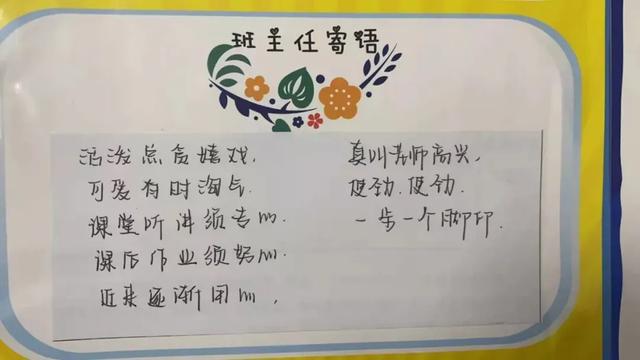 班主任寄语
活泼点贪嬉戏，
可爱有时淘气.
课堂听讲须专心.
课后作业须努心.
近来逐渐用心，
真叫老师高兴，
使劲.使劲.
一步一个脚印.